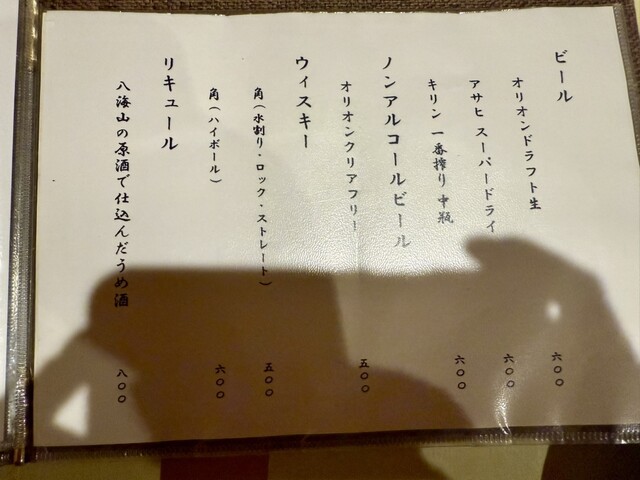 ビール
オリオンドラフト生 六〇〇
アサヒ スーパードライ 六〇〇
キリン 一番搾り 中瓶 六〇〇
ノンアルコールビール
オリオンクリアフリー 五〇〇
ウィスキー
角(水割り・ロック・ストレート) 五〇〇
角(ハイボール) 六〇〇
リキュール
八海山の原酒で仕込んだうめ酒 八〇〇